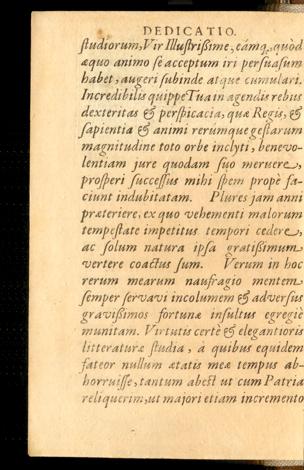 DEDICATIO.
studiorum, Vir Illustrißime, cámq, quòd
æquo animo se acceptum iri persuasum
habet, augeri subinde atque cumulari.
Incredibilis quippe Tua in agendis rebus
dexteritas & perspicacia, quæ Regis, &
sapientia & animi rerumque gestarum
magnitudine toto orbe inclyti, benevo-
lentiam jure quodam suo meruere,
prosperi successus mihi spem propè fa-
ciunt indubitatam. Plures jam anni
præteriere, ex quo vehementi malorum
tempestate impetitus tempori cedere,
ac solum natura ipsa gratißimum
vertere coactus sum. Verum in hoc
rerum mearum naufragio mentem
semper servavi incolumem & adversus
gravißimos fortunæ insultus egregiè
munitam. Virtutis certè & elegantioris
litteraturæ studia, à quibus equidem
fateor nullum ætatis meæ tempus ab-
horruisse, tantum abest ut cum Patria
reliquerim, ut majori etiam incremento